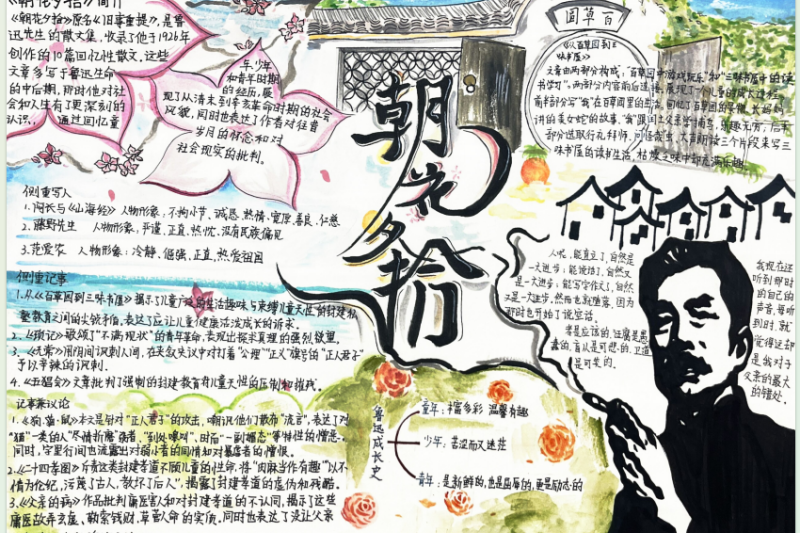 《朝花夕拾》简介
《朝花夕拾》原名《旧事重提》,是鲁
迅先生的散文集,收录了他于1926年
创作的10篇回忆性散文,这些
文章多写于鲁迅生命
的中后期,那时他对社
会和人生有了更深刻的
认识,通过回忆童
年、少年
和青年时期
的经历,展
现了从清末到辛亥革命时期的社会
风貌,同时也表达了作者对往昔
岁月的怀念和对
社会现实的批判。
朝花夕拾
百草园
《从百草园到三
味书屋》
文章由两部分构成:"百草园中游戏玩乐"和"三味书屋中的读
书学习",两部分内容前后连接,展现了一个儿童的成长过程。
南书部分写"我"在百草园里的生活,回忆了百草园的景像、长妈妈
讲的美女蛇的故事,"我"跟闰土父亲学捕鸟,乐趣无穷;后半
部分选取行礼拜师,问怪哉虫,大声朗读三个片段来写三
味书屋的读书生活,枯燥乏味中却充满乐趣。
侧重写人
1.阿长与《山海经》 人物形象:不拘小节、诚恳、热情、宽厚、善良、仁慈
2.藤野先生 人物形象:严谨、正直、热忱、没有民族偏见
3.范爱农 人物形象:冷静、倔强、正直、热爱祖国
侧重记事
1.《从百草园到三味书屋》揭示了儿童广阔的生活趣味与束缚儿童天性的封建私
塾教育之间的尖锐矛盾,表达了应让儿童健康活泼成长的诉求。
2.《琐记》歌颂了"不满现状"的青年革命,表现出探求真理的强烈欲望。
3.《无常》用阴间讽刺人间,在夹叙夹议中对打着"公理""正义"旗号的"正人君子"
予以辛辣的讽刺。
4.《五猖会》文章批判了强制的封建教育对儿童天性的压制和摧残。
记事兼议论
1.《狗·猫·鼠》本文是针对"正人君子"的攻击,嘲讽他们散布"流言",表述了对
"猫"一类的人"尽情折磨"弱者、"到处嗥叫"、时而"一副媚态"等特性的憎恶,
同时,字里行间也流露出对弱小者的同情和对暴虐者的憎恨。
2.《二十四孝图》斥责这类封建孝道不顾儿童的性命,将"肉麻当作有趣""以不
情为伦纪,污蔑了古人,教坏了后人",揭露了封建孝道的虚伪和残酷。
3.《父亲的病》作品批判庸医害人和对封建孝道的不认同,揭示了这些
庸医故弄玄虚、勒索钱财,草菅人命的实质。同时也表达了没让父亲
鲁迅成长史
童年:丰富多彩 温馨有趣
少年:苦涩而又迷茫
青年:是新鲜的,也是屈辱的,更是励志的
人呢,能直立了,自然是
一大进步;能说话了,自然又
是一大进步;能写字作文了,自然
又是一大进步,然而也就堕落,因为
那时也开始了说空话。
者是应该的,迂腐是愚
我现在还
听到那时
的自己的
声音,每听
到时,就
觉得这却
是我对于
父亲的最大
的错处。